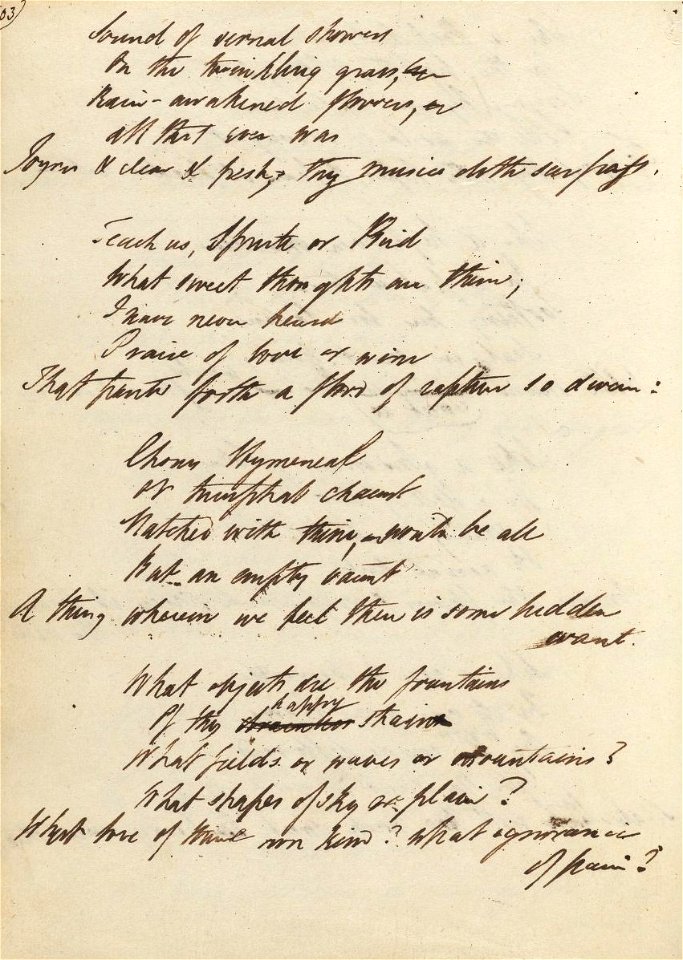 03)
Sound of vernal showers
On the twinkling grass,
Rain-awakened flowers, or
all that ever was
Joyous & clear & fresh, thy music doth surpass.
Teach us, Sprite or Bird
What sweet thoughts are thine;
I have never heard
Praise of love or wine
That panted forth a flood of rapture so divine:
Chorus Hymeneal
Or triumphal chaunt
Matched with thine, would be all
But an empty vaunt
A thing wherein we feel there is some hidden
want.
What objects are the fountains
happy
Of thy strain
What fields or waves or mountains?
What shapes of sky or plain?
What love of thine own kind? what ignorance
of pain?